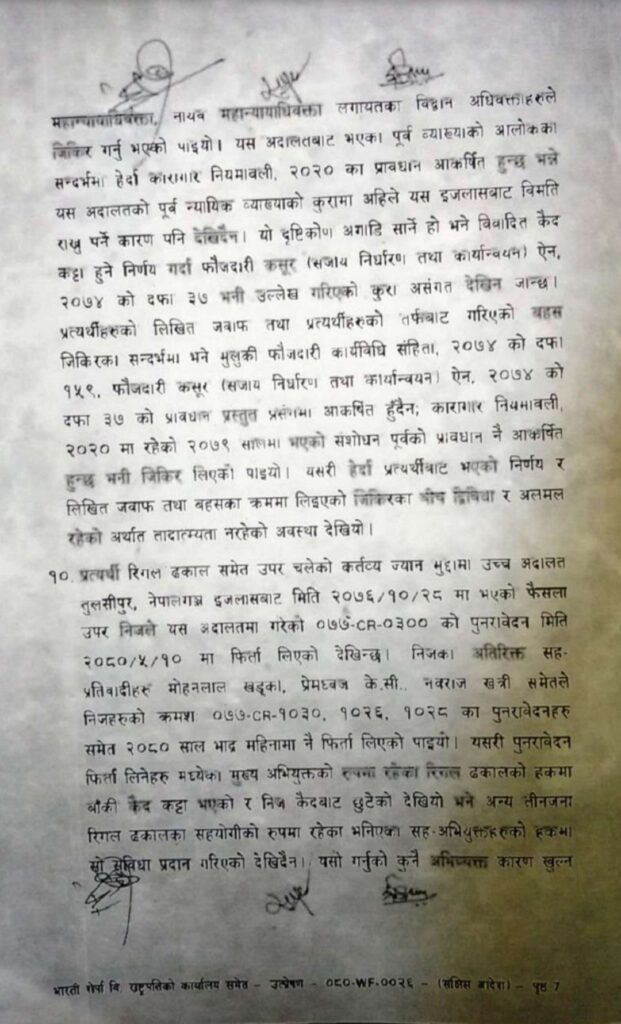 महान्यायाधिवक्ता, नायब महान्यायाधिवक्ता लगायतका विद्वान अधिवक्ताहरुले
जिकिर गर्नु भएको पाइयो। यस अदालतबाट भएका पूर्व व्याख्याको आलोकका
सन्दर्भमा हेर्दा कारागार नियमावली, २०२० का प्रावधान आकर्षित हुन्छ भन्ने
यस अदालतको पूर्व न्यायिक व्याख्याको कुरामा अहिले यस इजलासबाट विमति
राख्नु पर्ने कारण पनि देखिदैन। यो दृष्टिकोण अगाडि सार्ने हो भने विवादित कैद
कट्टा हुने निर्णय गर्दा फौजदारी कसूर (सजाय निर्धारण तथा कार्यान्वयन) ऐन,
२०७४ को दफा ३७ भनी उल्लेख गरिएको कुरा असंगत देखिन जान्छ।
प्रत्यर्थीहरुको लिखित जवाफ तथा प्रत्यर्थीहरुको तर्फबाट गरिएको बहस
जिकिरका सन्दर्भमा भने मुलुकी फौजदारी कार्यविधि संहिता, २०७४ को दफा
१५९, फौजदारी कसूर (सजाय निर्धारण तथा कार्यान्वयन) ऐन, २०७४ को
दफा ३७ को प्रावधान प्रस्तुत प्रसंगमा आकर्षित हुँदैन; कारागार नियमावली,
२०२० मा रहेको २०७९ सालमा भएको संशोधन पूर्वको प्रावधान नै आकर्षित
हुन्छ भनी जिकिर लिएको पाइयो। यसरी हेर्दा प्रत्यर्थीबाट भएको निर्णय र
लिखित जवाफ तथा बहसका क्रममा लिइएको जिकिरका बीच द्विविधा र अलमल
रहेको अर्थात तादात्म्यता नरहेको अवस्था देखियो।
१०. प्रत्यर्थी रिगल ढकाल समेत उपर चलेको कर्तव्य ज्यान मुद्दामा उच्च अदालत
तुलसीपुर, नेपालगञ्ज इजलासबाट मिति २०७६/१०/२८ मा भएको फैसला
उपर निजले यस अदालतमा गरेको ०७७-CR-०३०० को पुनरावेदन मिति
२०८०/५/१० मा फिर्ता लिएको देखिन्छ। निजका अतिरिक्त सह-
प्रतिवादीहरु मोहनलाल खड्का, प्रेमध्वज के.सी., नवराज खत्री समेतले
निजहरुको क्रमश ०७७-CR-१०३०, १०२६, १०२८ का पुनरावेदनहरु
समेत २०८० साल भाद्र महिनामा नै फिर्ता लिएको पाइयो। यसरी पुनरावेदन
फिर्ता लिनेहरु मध्येका मुख्य अभियुक्तको रुपमा रहेका रिगल ढकालको हकमा
बाँकी कैद कट्टा भएको र निज कैदबाट छुटेको देखियो भने अन्य तीनजना
रिगल ढकालका सहयोगीको रुपमा रहेका भनिएका सह-अभियुक्तहरुको हकमा
सो सुविधा प्रदान गरिएको देखिदैन। यसो गर्नुको कुनै अभिव्यक्त कारण खुल्न
भारती शेर्पा वि. राष्ट्रपतिको कार्यालय समेत - उत्प्रेषण - ०८०-WF-००२६ - (संक्षिप्त आदेश) - पृष्ठ 7